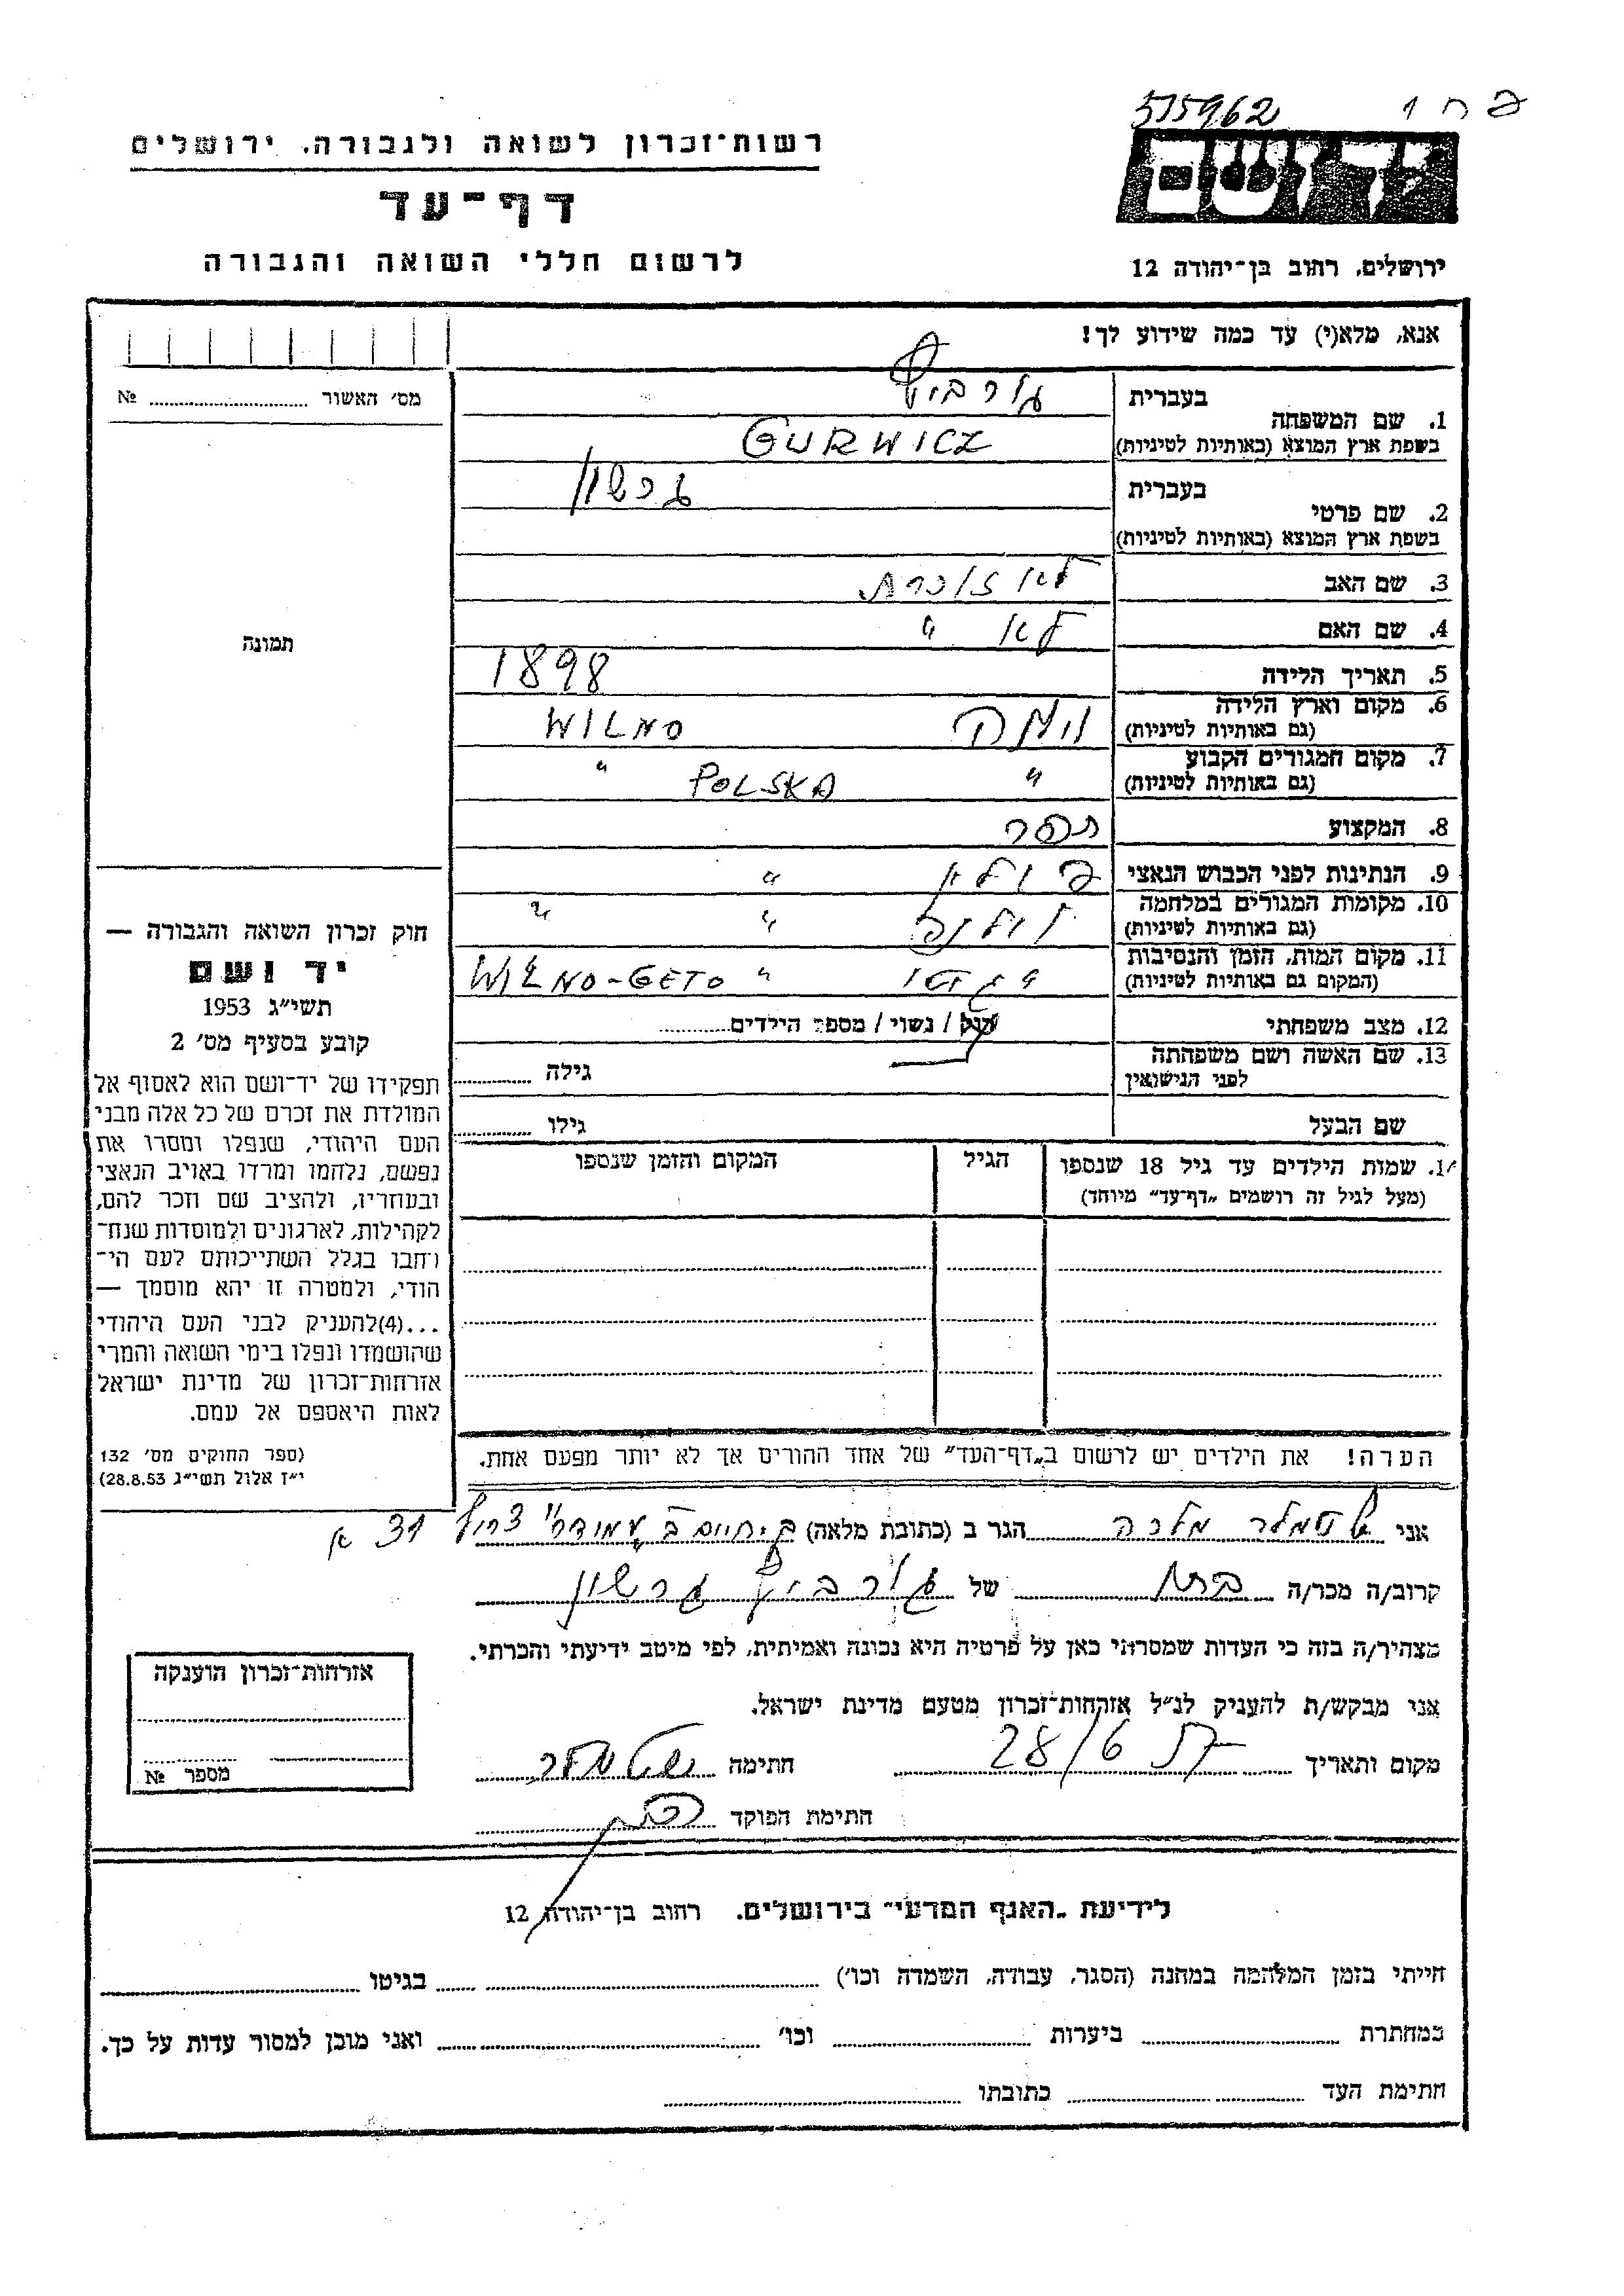 515962
רשות־זכרון לשואה ולגבורה, ירושלים
יד ושם
דף־עד
לרשום חללי השואה והגבורה
ירושלים, רחוב בן־יהודה 12
אנא, מלא(י) עד כמה שידוע לך!
מס׳ האשור № ........
תמונה
1. שם המשפחה בעברית גורביץ
בשפת ארץ המוצא (באותיות לטיניות) GURWICZ
2. שם פרטי בעברית גרשון
בשפת ארץ המוצא (באותיות לטיניות)
3. שם האב לא זוכרת
4. שם האם לא "
5. תאריך הלידה 1898
6. מקום וארץ הלידה (גם באותיות לטיניות) וילנה WILNO
7. מקום המגורים הקבוע (גם באותיות לטיניות) " POLSKA "
8. המקצוע תפר
9. הנתינות לפני הכבוש הנאצי פולין "
10. מקומות המגורים במלחמה (גם באותיות לטיניות) וילנה " "
11. מקום המות, הזמן והנסיבות (המקום גם באותיות לטיניות) " WILNO-GETO
12. מצב משפחתי רוק / נשוי / מספר הילדים........
13. שם האשה ושם משפחתה לפני הנישואין גילה ........
שם הבעל גילו ........
שמות הילדים עד גיל 18 שנספו
(מעל לגיל זה רושמים „דף־עד” מיוחד)
הגיל
המקום והזמן שנספו
הערה! את הילדים יש לרשום ב„דף־העד” של אחד ההורים אך לא יותר מפעם אחת.
חוק זכרון השואה והגבורה —
יד ושם
תשי״ג 1953
קובע בסעיף מס׳ 2
תפקידו של יד־ושם הוא לאסוף אל
המולדת את זכרם של כל אלה מבני
העם היהודי, שנפלו ומסרו את
נפשם, נלחמו ומרדו באויב הנאצי
ובעוזריו, ולהציב שם וזכר להם,
לקהילות, לארגונים ולמוסדות שנח־
רחבו בגלל השתייכותם לעם הי־
הודי, ולמטרה זו יהא מוסמך —
...(4)להעניק לבני העם היהודי
שהושמדו ונפלו בימי השואה והמרי
אזרחות־זכרון של מדינת ישראל
לאות היאספם אל עמם.
(ספר החוקים מס׳ 132
י״ז אלול תשי״ג 28.8.53)
אני מלכה הגר ב (כתובת מלאה) צריף 31 א
קרוב/ה מכר/ה של גורביץ גרשון
מצהיר/ה בזה כי העדות שמסרתי כאן על פרטיה היא נכונה ואמיתית, לפי מיטב ידיעתי והכרתי.
אני מבקש/ת להעניק לנ״ל אזרחות־זכרון מטעם מדינת ישראל.
מקום ותאריך 28/6 חתימה
חתימת הפוקד
אזרחות־זכרון הוענקה
מספר №
לידיעת „האגף המדעי” בירושלים. רחוב בן־יהודה 12
הייתי בזמן המלחמה במחנה (הסגר, עבודה, השמדה וכו׳) ........ בגיטו ........
במחתרת ........ ביערות ........ וכו׳ ........ ואני מוכן למסור עדות על כך.
חתימת העד ........ כתובתו ........